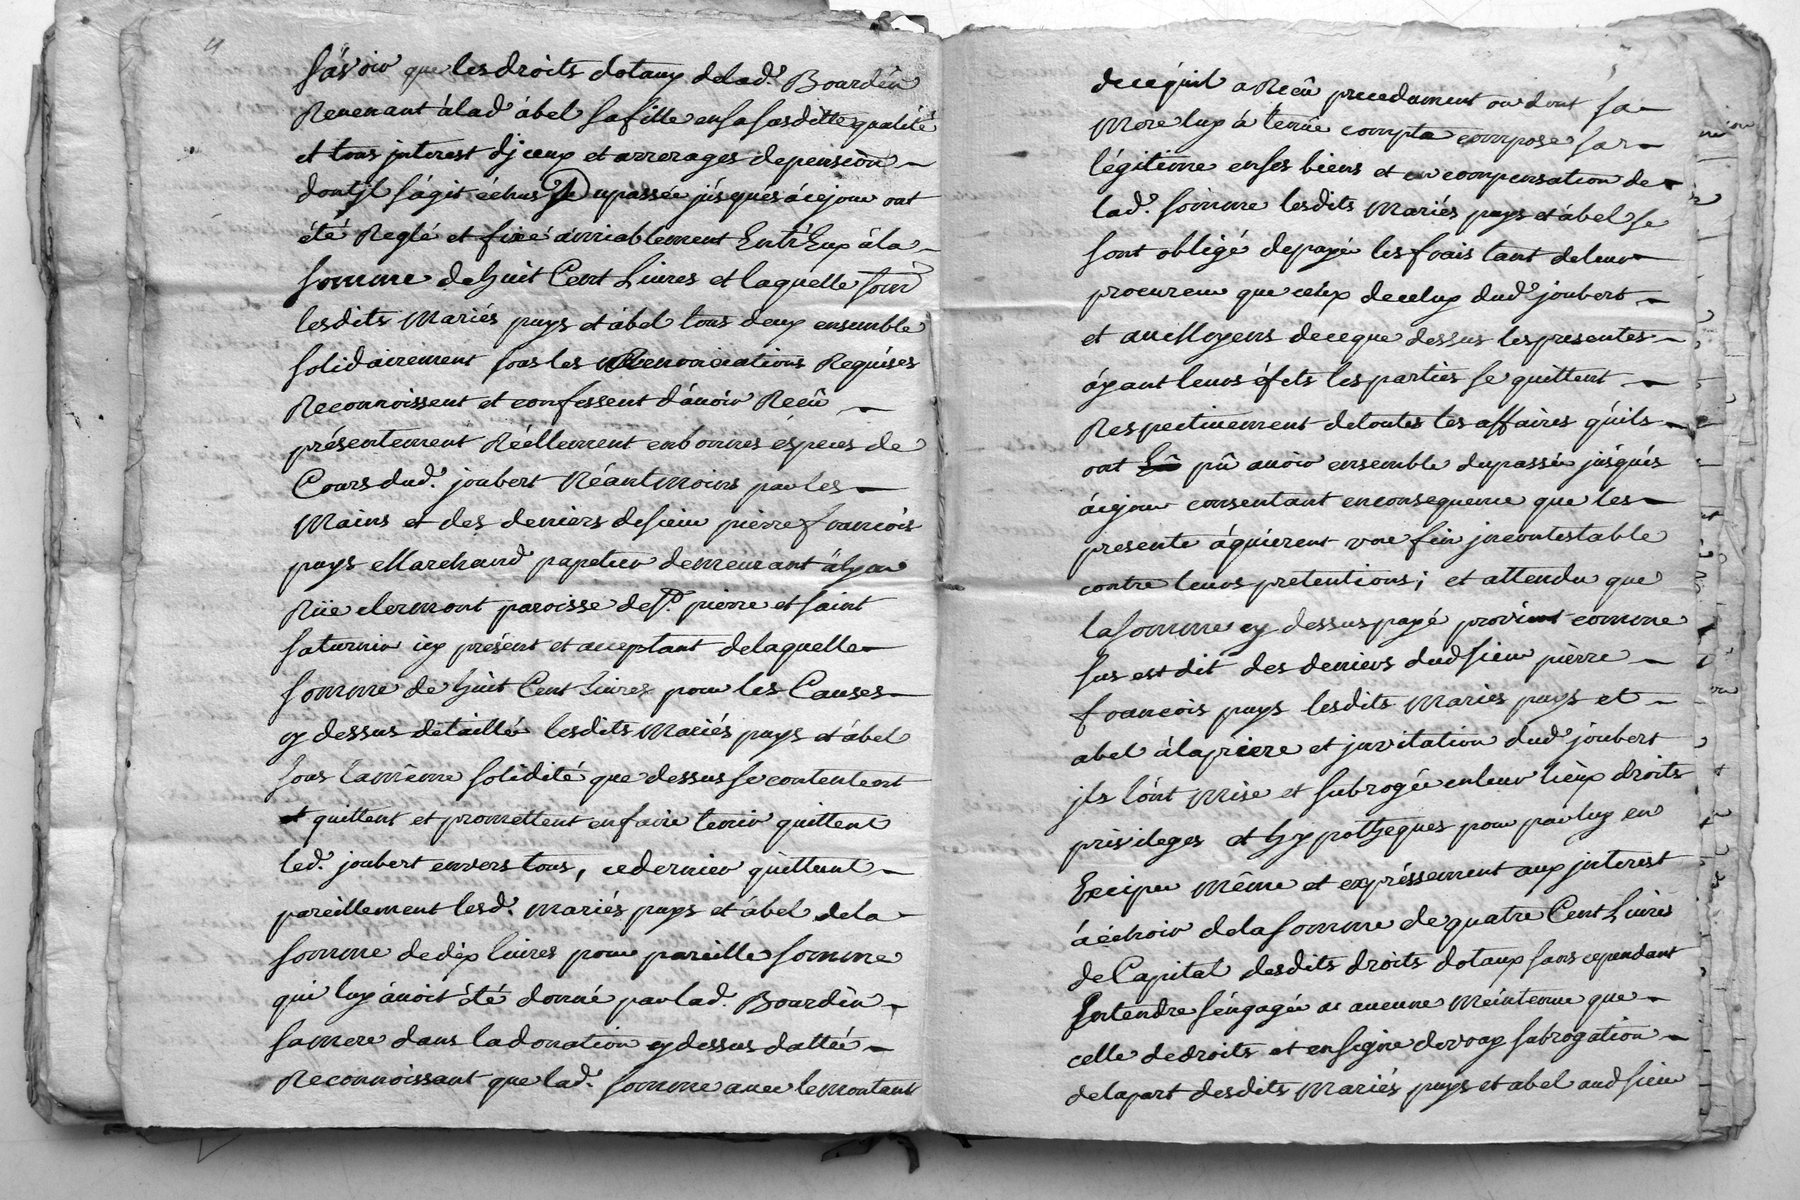 4
Sávoir que les droits dotaux de lad.e Bourdin
Revenant à lad.e ábel sa fille en sa susditte qualité
et tous jnterest djceux et arrerages de pension
dont jl ságit échus du passée júsqués á ce jour ont
été Reglé et fixé ámiablement Entr'Eux á la
somme de huit Cent Livres et laquelle somme
lesdits Mariés puys et ábel tous deux ensemble
solidairement sous les Renonciations Requises
Reconnoissent et confessent dávoir Reçû
présentement Réellement en bonnes éspeces de
Cours dud.t joubert Néantmoins par les
Mains et des deniers de sieur pierre francois
puys Marchand papetier demeurant á lyon
Rüe clermont paroisse de St. pierre et saint
saturnin icy présent et acceptant de laquelle
somme de huit Cent Livres pour les Causes
cy dessus detaillée lesdits Mariés puys et ábel
sous la même solidité que dessus se contentent
et quittent et promettent en faire tenir quittent
led.t joubert envers tous, ce dernier quittent
pareillement lesd.t Mariés puys et ábel de la
somme de dix livres pour pareille somme
qui luy ávoit été donné par lad.e Bourdin
sa mere dans la donation cy dessus dattée
Reconnoissant que lad.e somme avec le montant
5
de ce qu'il a Reçû precedament ou dont sa
Mere luy á tenüe compte compose sa
légitime en ses biens et en compensation de
lad.e somme lesdits Mariés puys et ábel se
sont obligé de payér les frais tant de leur
procureur que ceux de celuy dud.t joubert
et au Moyens de ce que dessus les presentes
áyant leurs éfets les parties se quittent
Respectivement de toutes les affaires qúils
ont pû avoir ensemble du passée júsqués
á ce jour consentant en consequence que les
presente áquierent une fin jncontestable
contre leurs pretentions; et attendu que
la somme cy dessus payé provient comme
sus est dit des deniers dud sieur pierre
francois puys lesdits Mariés puys et
abel á la priere et jnvitation dud.t joubert
jls lónt Mise et subrogée en leur lieux droits
privileges et hypotheques pour par luy en
Exciper Même et expréssement aux jnterest
á échoir de la somme de quatre Cent Livres
de Capital desdits droits dotaux sans cependant
Entendre séngagér á aucune Meintenue que
celle de droits et en signe de vray subrogation
de la part desdits Mariés puys et abel aud sieur